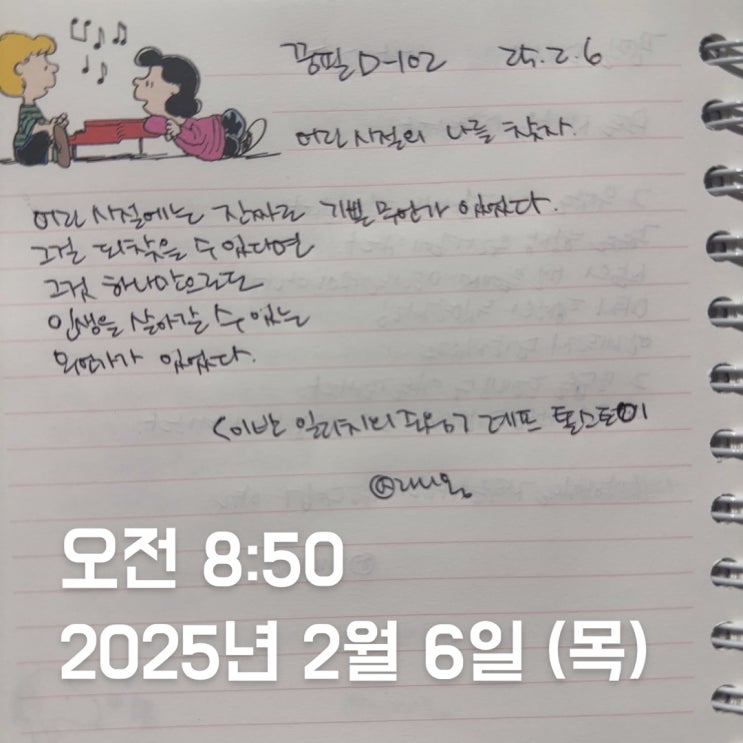 꿍필 D-102 25. 2. 6
어린 시절의 나를 찾자.
어린 시절에는 진짜로 기쁠 무언가 있었다.
그걸 되찾을 수 있다면
그것 하나만으로도
인생을 살아갈 수 있는
무언가가 있었다.
<이반 일리치의 죽음> 레프 톨스토이
오전 8:50
2025년 2월 6일 (목)